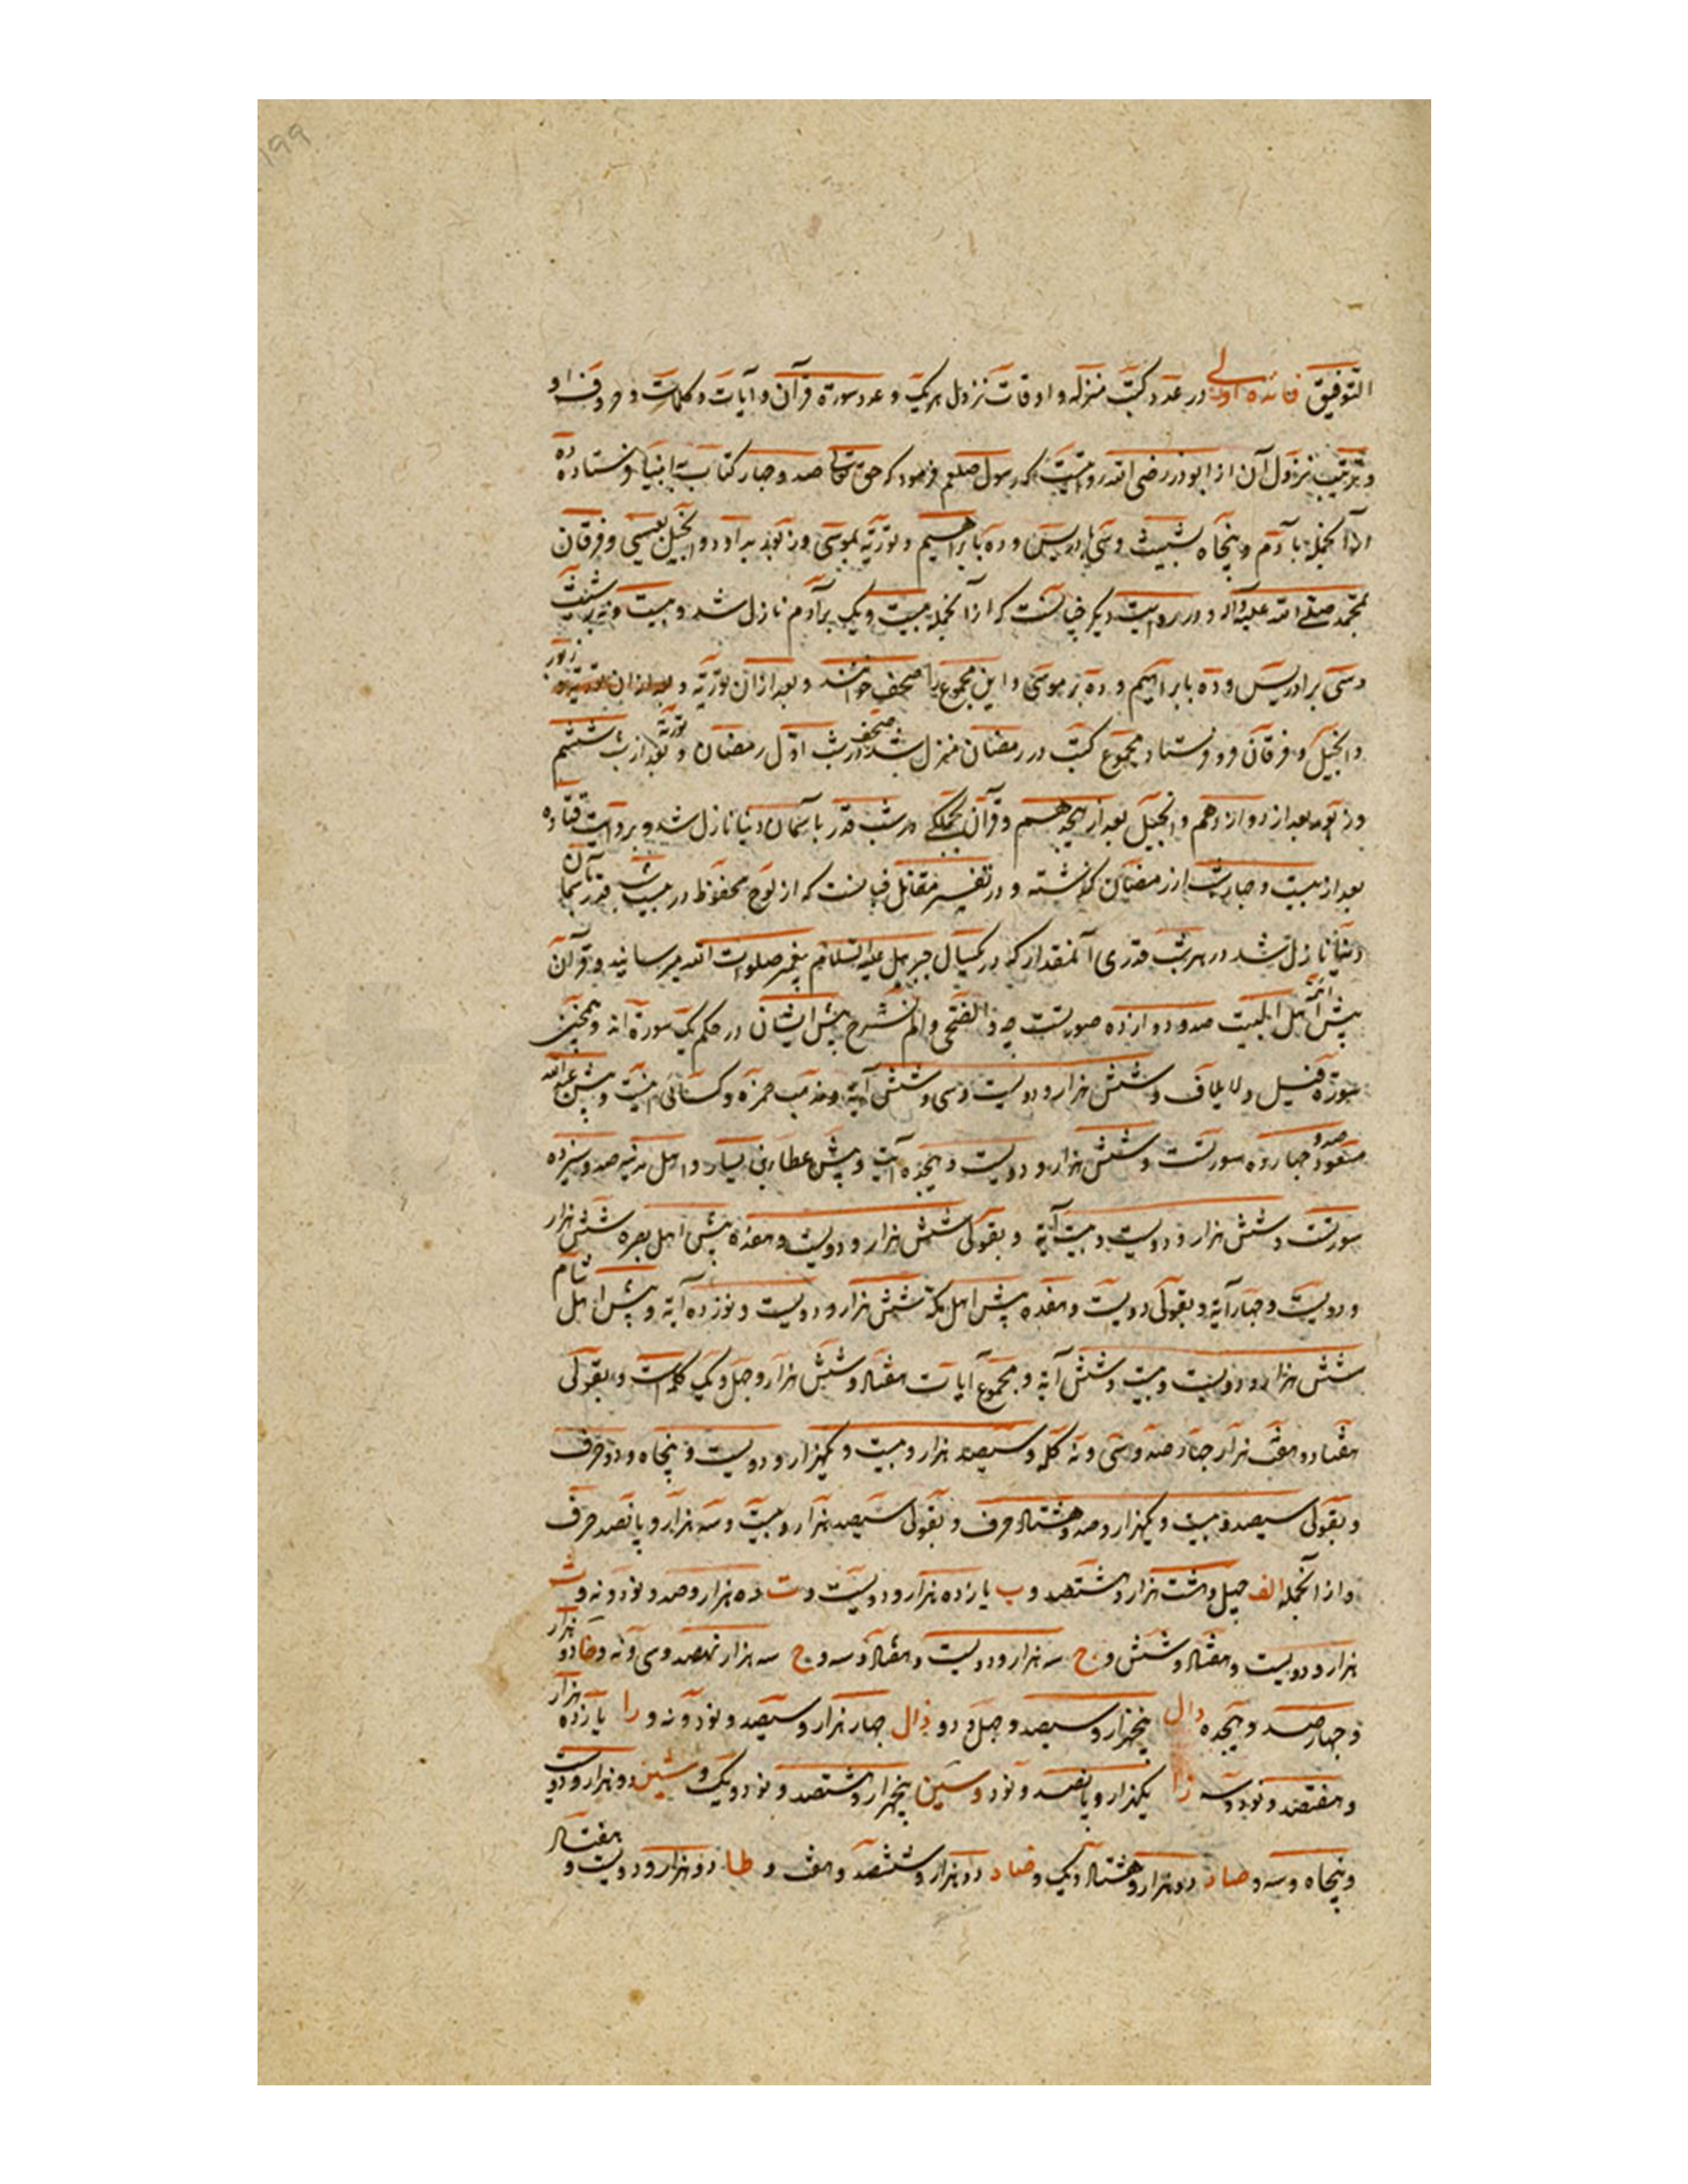 ۱۹۹
التوفیق فائده اولی در عدد کتب منزله و اوقات نزول هر یک و عدد سورة قرآن و آیات و کلمات و حروف او
و ترتیب نزول آن از ابوذر رضی الله روایتست که رسول صلعم فرمود که حق تعالی صد و چهار کتاب به انبیا فرستاده ده
از آنجمله بآدم و پنجاه بشیث و سی بادریس و ده بابراهیم و توریة بموسی و زبور بداود و انجیل بعیسی و فرقان
بمحمد صلی الله علیه و آله و در روایت دیگر چنانست که از آنجمله بیست و یک بر آدم نازل شد و بیست و نه بر شیث
و سی بر ادریس و ده بابراهیم و ده بر موسی و این مجموع را صحف خوانند و بعد از آن توریة و بعد از آن توریة و زبور
و انجیل و فرقان فرو فرستاد و مجموع کتب در رمضان منزل شد صحف در شب اول رمضان و توریة بعد از شب ششم
و زبور بعد از دوازدهم و انجیل بعد از هیجدهم و قرآن بجملگی در شب قدر بآسمان دنیا نازل شد و بروایت قتاده
بعد از بیست و چهار شب از رمضان گذشته و در تفسیر مقاتل چنانست که از لوح محفوظ در بیست شب قدر بآسمان
دنیا نازل شد در هر شب قدری آنمقدار که در یکسال جبرئیل علیه السلام پیغمبر صلوات الله میرسانید و قرآن
پیش ائمه اهل البیت صد و دوازده صورتست چه و الضحی و الم نشرح پیش ایشان در حکم یک سورة اند و همچنین
سورة فیل و لایلاف و شش هزار و دویست و سی و شش آیة و مذهب حمزه و کسائی اینست و پیش عبدالله
مسعود صد و چهارده سورتست و شش هزار و دویست و هیجده آیت و پیش عطا بن یسار و اهل مدینه صد و سیزده
سورتست و شش هزار و دویست و بیست آیة و بقولی شش هزار و دویست و هفده پیش اهل بصره شش هزار
و دویست و چهار آیة و بقولی دویست و هفده پیش اهل مکه شش هزار و دویست و نوزده آیة و پیش اهل شام
شش هزار و دویست و بیست و شش آیة و مجموع آیات هفتاد و شش هزار و چهل و یک کلمه است و بقولی
هفتاد و هفت هزار چهار صد و سی و نه کلمه و سیصد هزار و بیست و یکهزار و دویست و پنجاه و دو حرف
و بقولی سیصد و بیست و یکهزار و صد و هشتاد حرف و بقولی سیصد هزار و بیست و سه هزار و پانصد حرف
و از آنجمله الف چهل و هشت هزار و هشتصد و ب یازده هزار و دویست و ت ده هزار و صد و نود و نه و ث
هزار و دویست و هفتاد و شش و ج سه هزار و دویست و هفتاد و سه و ح سه هزار نهصد و سی و نه و خا دو هزار
و چهار صد و هیجده دال پنجهزار و سیصد و چهل و دو ذال چهار هزار و سیصد و نود و نه و را یازده هزار
و هفتصد و نود و سه زا یکهزار و پانصد و نود و سین پنجهزار و هشتصد و نود و یک و شین دو هزار و دویست
و پنجاه و سه و صاد دو هزار و هشتاد و یک و ضاد دو هزار و ششصد و هفت و طا دو هزار و دویست و هفتاد